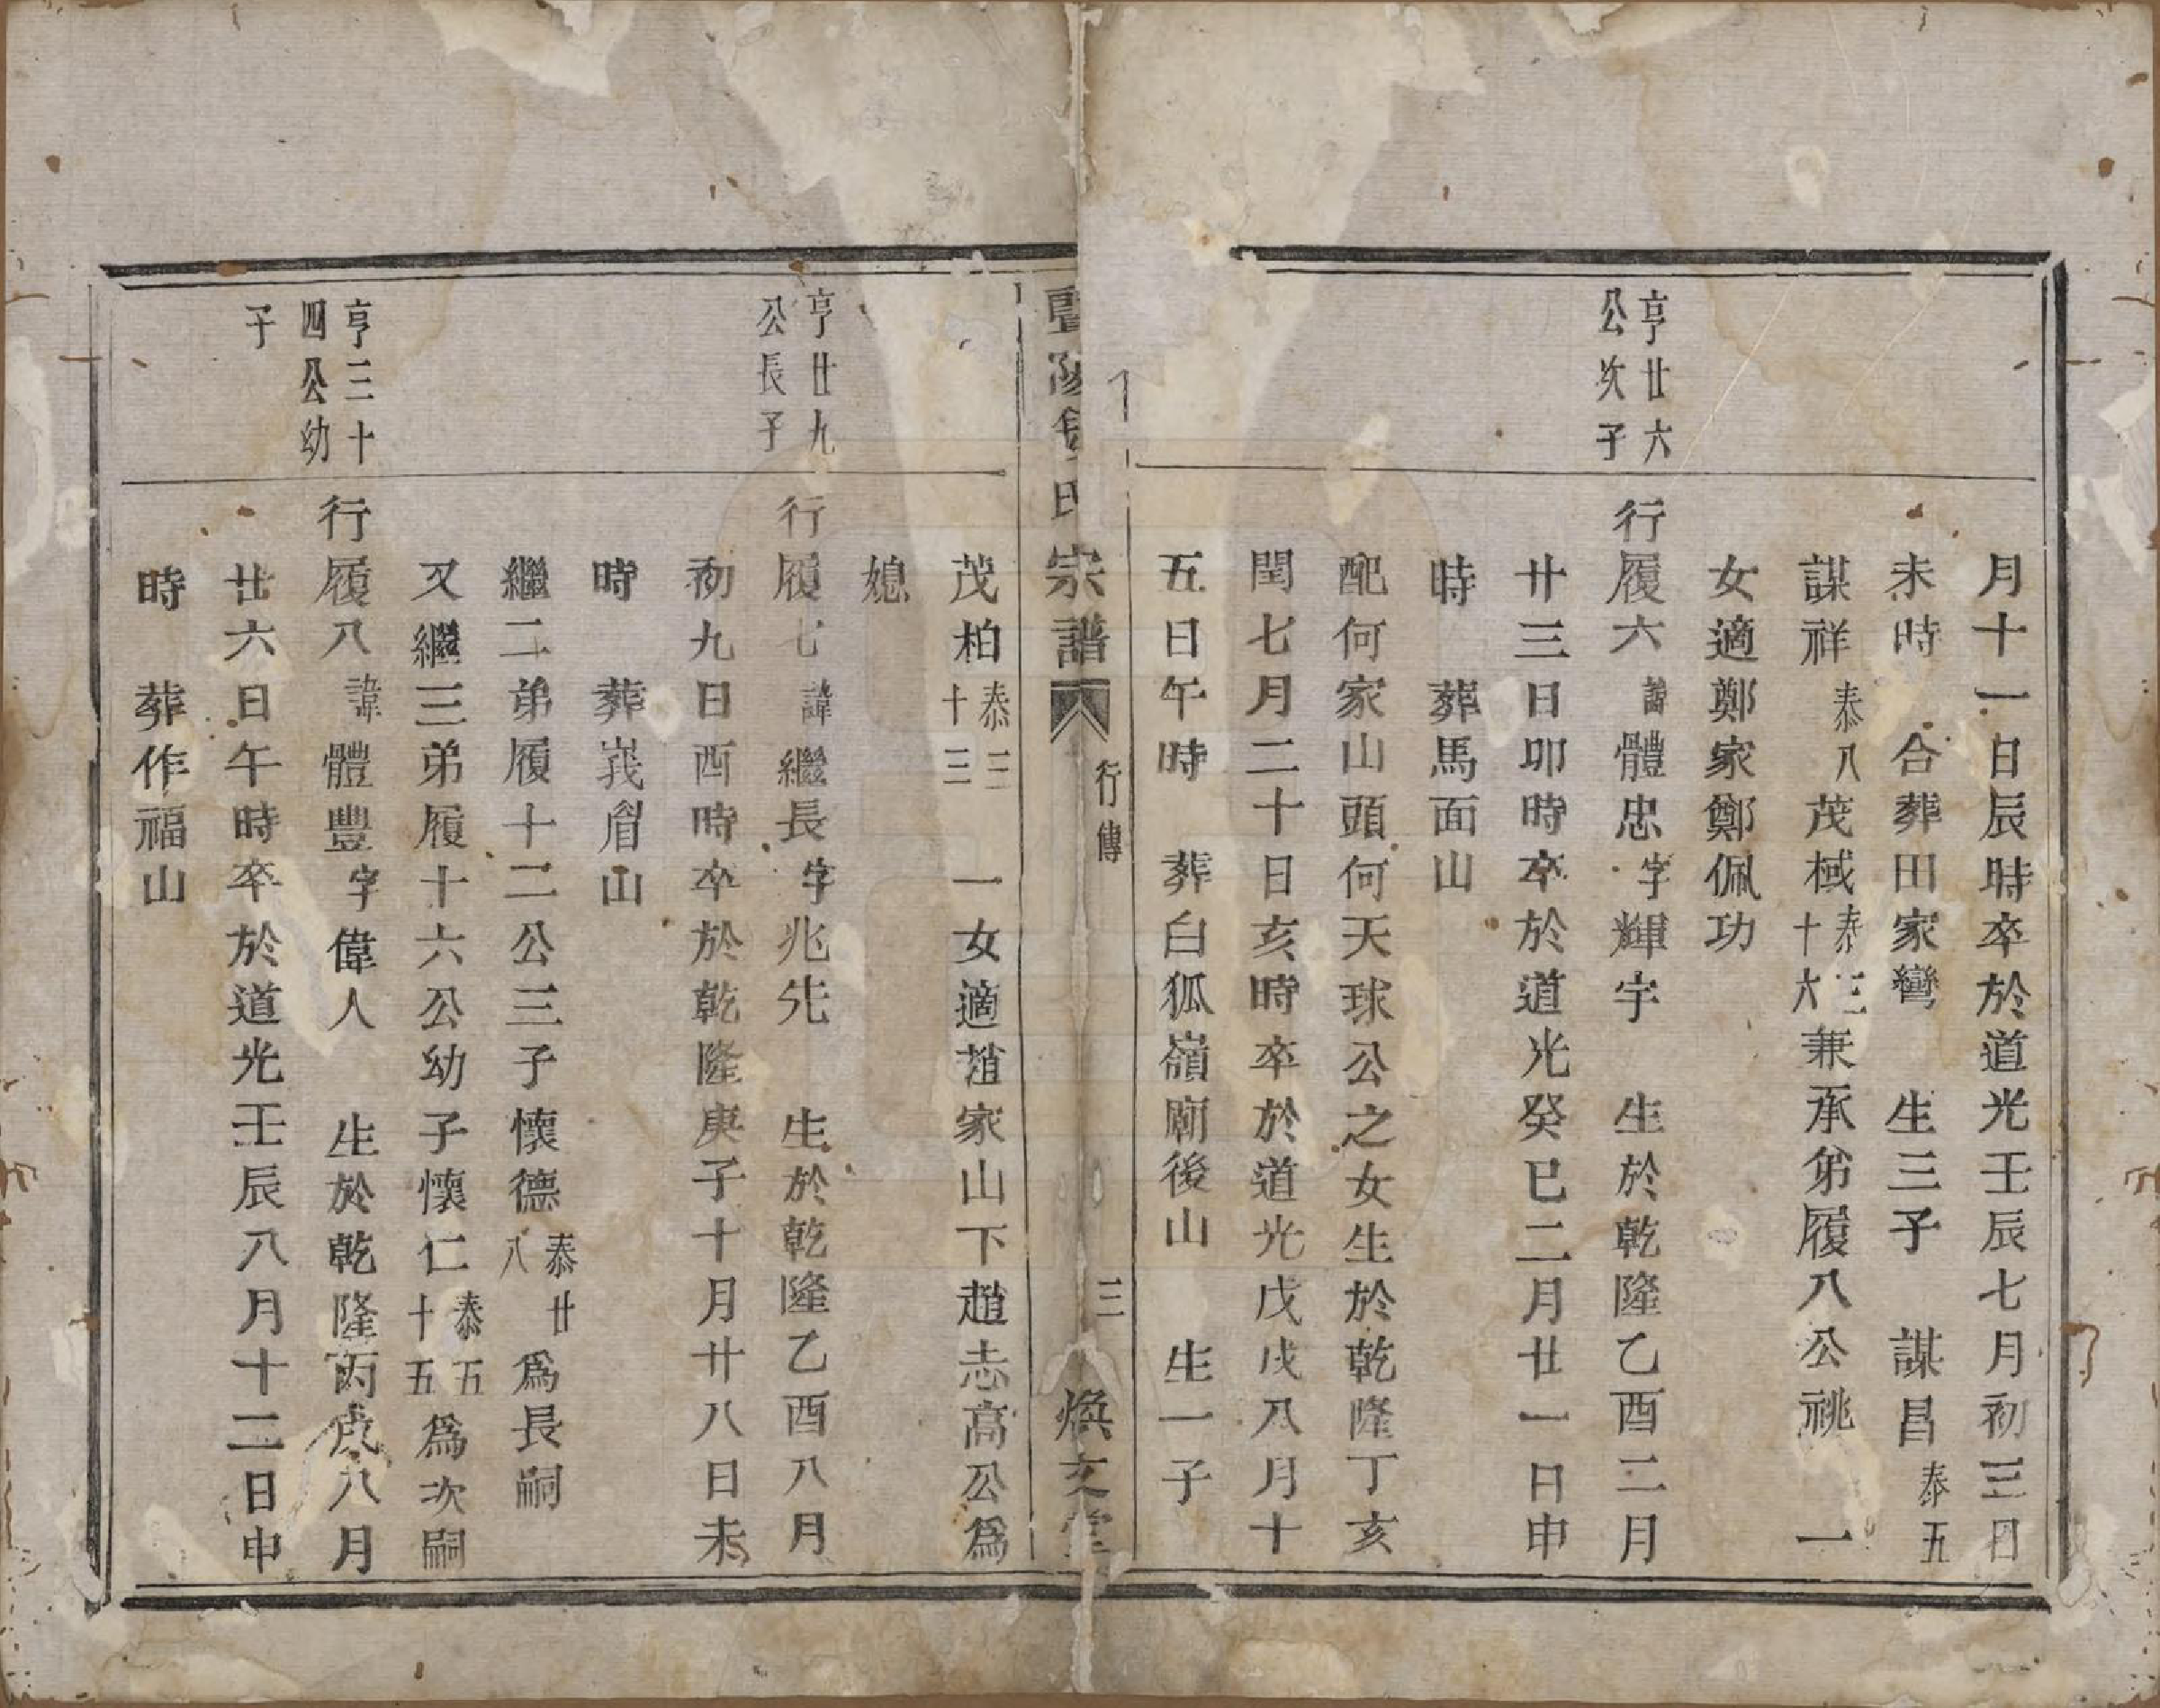 月十一日辰時卒於道光壬辰七月初三日
未時　合葬田家彎　生三子　謀昌泰五
謀祥泰八茂棫泰三十六兼承弟履八公祧　一
女適鄭家鄭佩功
亨廿六公次子
行履六諱體忠字輝宇　生於乾隆乙酉二月
廿三日卯時卒於道光癸巳二月廿一日申
時　葬馬面山
配何家山頭何天球公之女生於乾隆丁亥
閏七月二十日亥時卒於道光戊戌八月十
五日午時　葬白狐嶺廟後山　生一子
暨陽　氏宗譜　行傳　三　煥文堂
茂柏泰三十三　一女適趙家山下趙志高公爲
媳
亨廿九公長子
行履七諱繼長字兆先　生於乾隆乙酉八月
初九日酉時卒於乾隆庚子十月廿八日未
時　葬峩眉山
繼二弟履十二公三子懷德泰廿八爲長嗣
又繼三弟履十六公幼子懷仁泰五十五爲次嗣
亨三十四公幼子
行履八諱體豐字偉人　生於乾隆丙戌八月
廿六日午時卒於道光壬辰八月十二日申
時　葬作福山